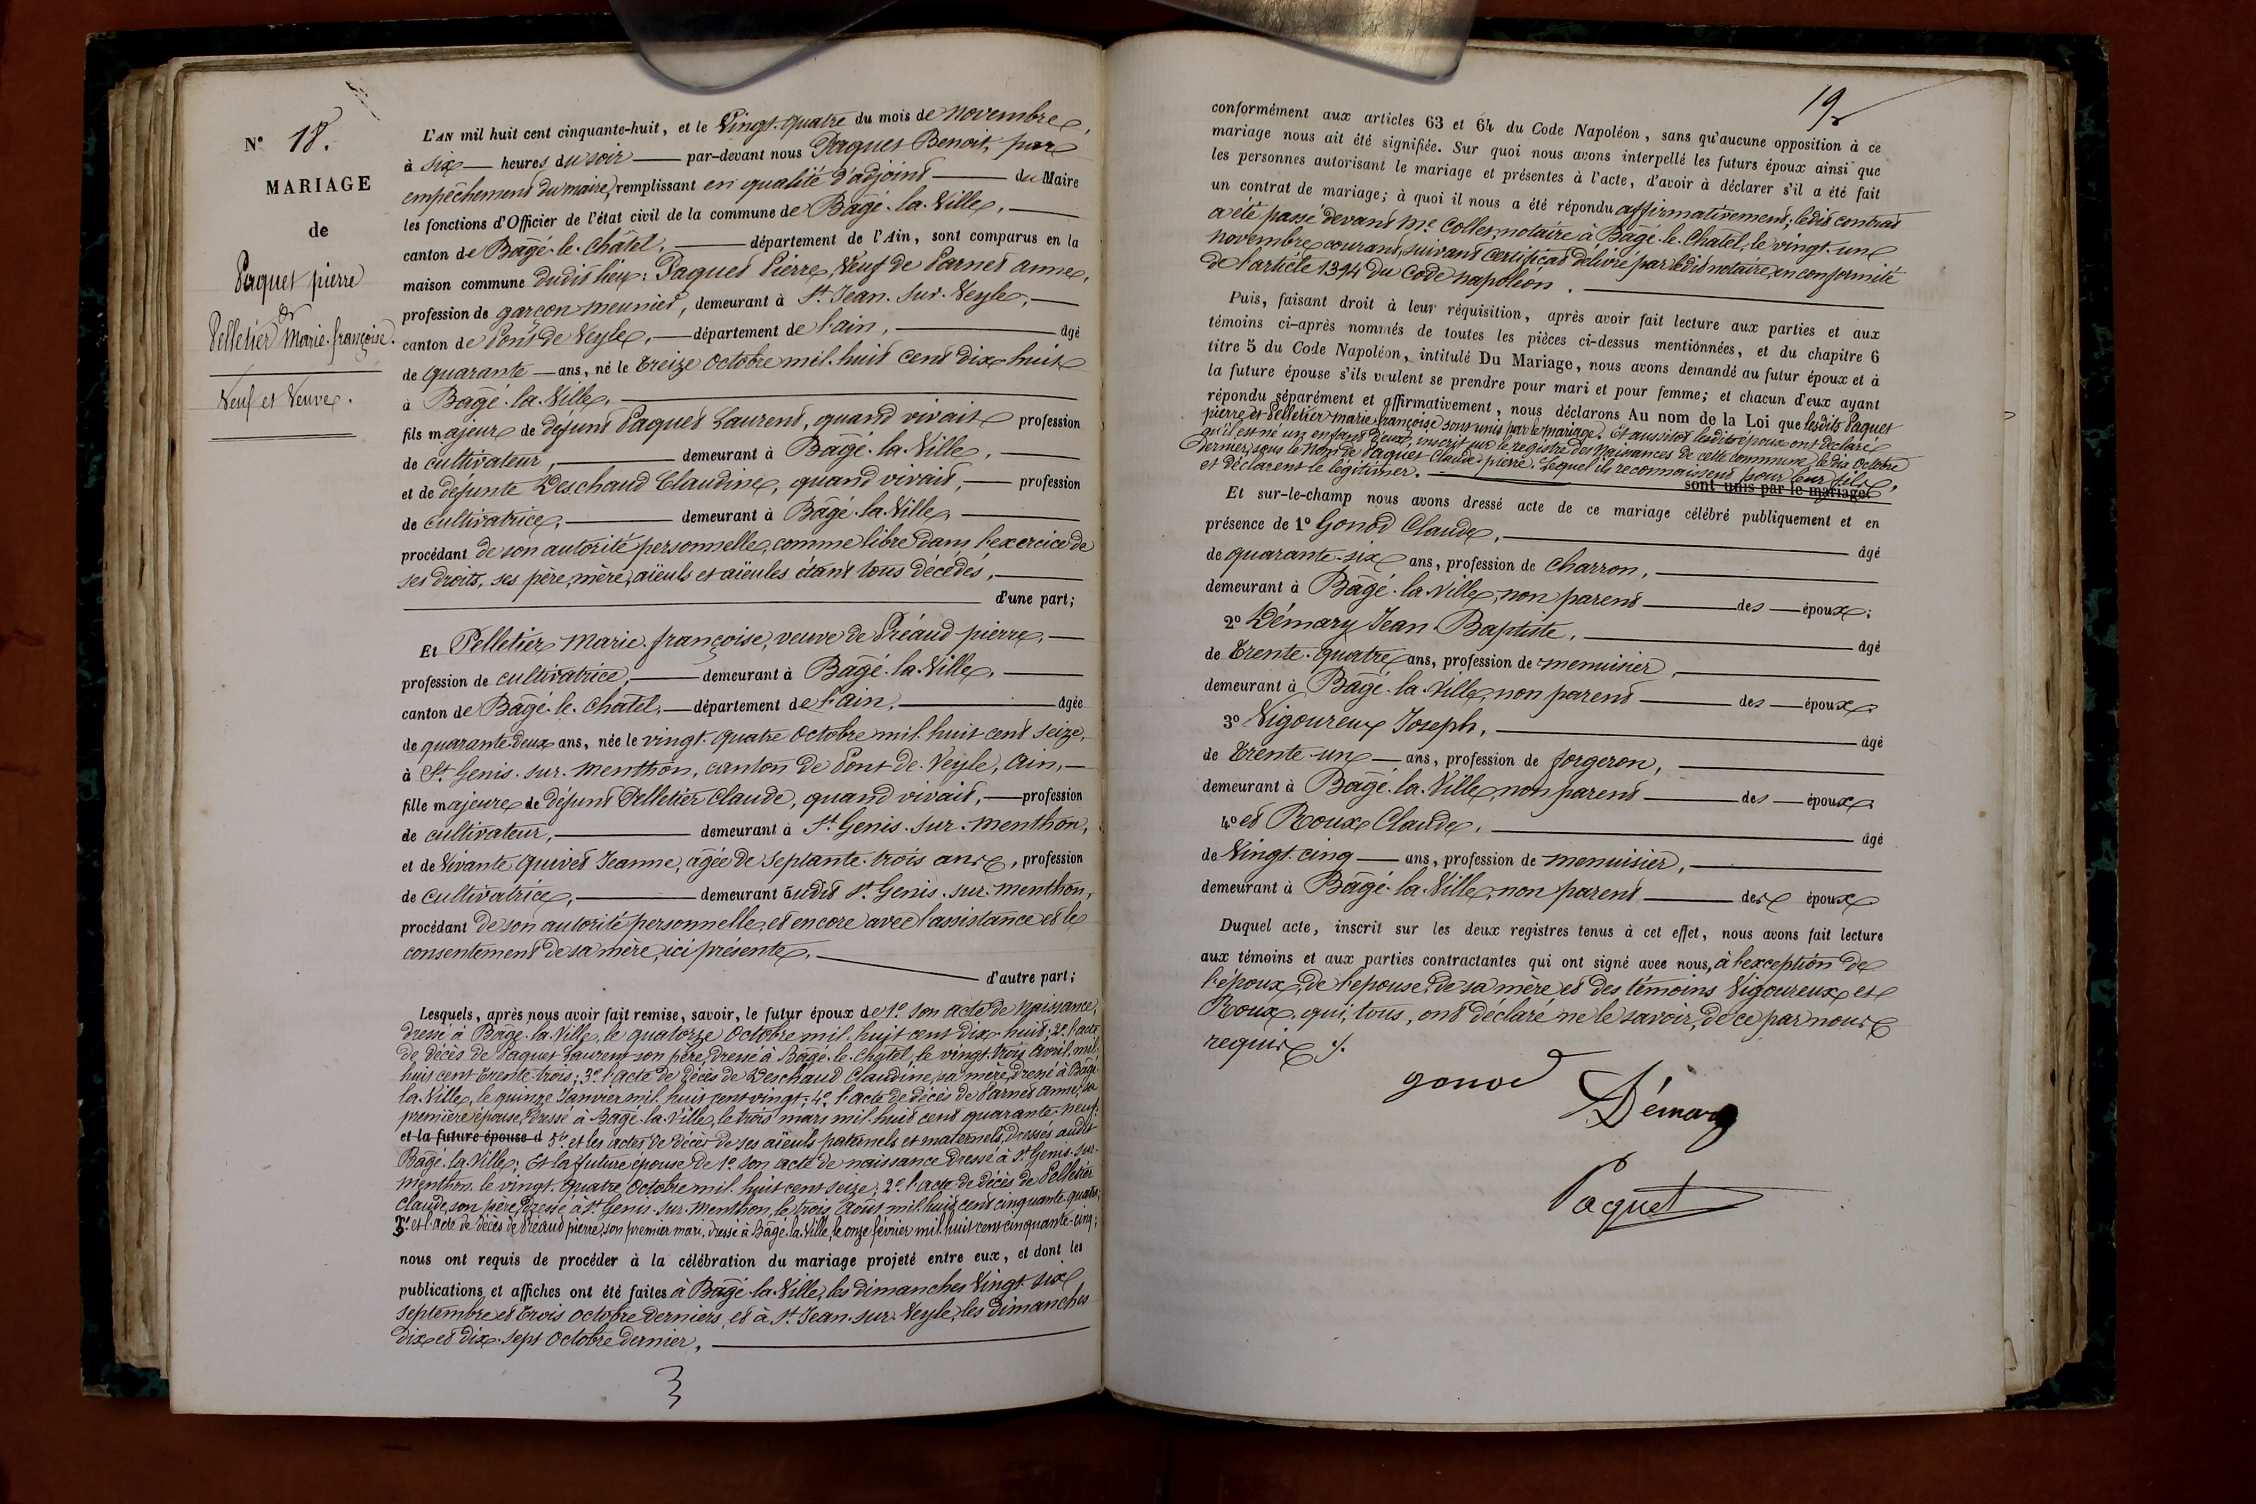 N° 18.
MARIAGE
de
Paquet pierre
et
Pelletier Marie-françoise.
Veuf et Veuve.
L'AN mil huit cent cinquante-huit, et le Vingt-quatre du mois de novembre,
à six heures du soir par-devant nous Paquet Benoit, par
empêchement du maire, remplissant en qualité d'adjoint du Maire
les fonctions d'Officier de l'état civil de la commune de Bâgé-la-Ville,
canton de Bâgé-le-Châtel, département de l'Ain, sont comparus en la
maison commune dudit lieu: Paquet Pierre, Veuf de Parnet anne,
profession de garçon meunier, demeurant à St. Jean-sur-Veyle,
canton de Pont de Veyle, département de l'ain, âgé
de quarante ans, né le treize octobre mil-huit cent dix-huit
à Bâgé-la-Ville,
fils majeur de défunt Paquet Laurent, quand vivait profession
de cultivateur, demeurant à Bâgé-la-Ville,
et de défunte Deschaud Claudine, quand vivait, profession
de cultivatrice, demeurant à Bâgé-la-Ville,
procédant de son autorité personnelle, comme libre dans l'exercice de
ses droits, ses père, mère, aïeuls et aïeules étant tous décédés,
d'une part;
Et Pelletier Marie-françoise, veuve de Préaud pierre,
profession de cultivatrice, demeurant à Bâgé-la-Ville,
canton de Bâgé-le-Châtel, département de l'ain, âgée
de quarante-deux ans, née le vingt-quatre octobre mil-huit cent seize,
à St. Genis-sur-Menthon, canton de Pont-de-Veyle, Ain,
fille majeure de défunt Pelletier Claude, quand vivait, profession
de cultivateur, demeurant à St. Genis-sur-menthon,
et de Vivante Quivet Jeanne, âgée de septante-trois ans, profession
de cultivatrice, demeurant audit St. Genis-sur-menthon,
procédant de son autorité personnelle, et encore avec l'assistance et le
consentement de sa mère, ici présente,
d'autre part;
Lesquels, après nous avoir fait remise, savoir, le futur époux de 1° son acte de naissance,
dressé à Bâgé-la-Ville, le quatorze octobre mil-huit cent dix-huit; 2° l'acte
de décès de Paquet Laurent son père, dressé à Bâgé-le-Châtel, le vingt-trois avril mil-
huit cent trente-trois; 3° l'acte de décès de Deschaud Claudine, sa mère, dressé à Bâgé-
la-Ville, le quinze Janvier mil-huit cent vingt; 4° l'acte de décès de Parnet anne, sa
première épouse, dressé à Bâgé-la-Ville, le trois mars mil-huit cent quarante-neuf;
et la future épouse d 5° et les actes de décès de ses aïeuls paternels et maternels, dressés audit
Bâgé-la-Ville; Et la future épouse de 1° son acte de naissance dressé à St. Genis-sur-
menthon le vingt-quatre octobre mil-huit cent seize; 2° l'acte de décès de Pelletier
Claude, son père, dressé à St. Genis-sur-Menthon, le trois Août mil-huit cent cinquante-quatre;
3° et l'acte de décès de Préaud pierre, son premier mari, dressé à Bâgé-la-Ville, le onze février mil-huit cent cinquante-cinq;
nous ont requis de procéder à la célébration du mariage projeté entre eux, et dont les
publications et affiches ont été faites à Bâgé-la-Ville, les dimanches Vingt-six
septembre et trois octobre derniers, et à St. Jean-sur-Veyle, les dimanches
dix et dix-sept octobre dernier,
19
conformément aux articles 63 et 64 du Code Napoléon, sans qu'aucune opposition à ce
mariage nous ait été signifiée. Sur quoi nous avons interpellé les futurs époux ainsi que
les personnes autorisant le mariage et présentes à l'acte, d'avoir à déclarer s'il a été fait
un contrat de mariage; à quoi il nous a été répondu affirmativement; ledit contrat
a été passé devant Me. Collet, notaire à Bâgé-le-Châtel, le vingt-un
novembre courant, suivant certificat délivré par ledit notaire, en conformité
de l'article 1394 du Code napoléon.
Puis, faisant droit à leur réquisition, après avoir fait lecture aux parties et aux
témoins ci-après nommés de toutes les pièces ci-dessus mentionnées, et du chapitre 6
titre 5 du Code Napoléon, intitulé Du Mariage, nous avons demandé au futur époux et à
la future épouse s'ils veulent se prendre pour mari et pour femme; et chacun d'eux ayant
répondu séparément et affirmativement, nous déclarons Au nom de la Loi que lesdits Paquet
pierre et Pelletier marie-françoise sont unis par le mariage. Et aussitôt lesdits époux ont déclaré
qu'il est né un enfant d'eux, inscrit sur le registre des naissances de cette commune, le dix Octobre
dernier, sous le nom de Paquet Claude-pierre. Lequel ils reconnaissent pour leur fils,
et déclarent le légitimer.
sont unis par le mariage.
Et sur-le-champ nous avons dressé acte de ce mariage célébré publiquement et en
présence de 1° Gonod Claude, âgé
de quarante-six ans, profession de charron,
demeurant à Bâgé-la-Ville, non parent des époux;
2° Démary Jean-Baptiste, âgé
de trente-quatre ans, profession de menuisier,
demeurant à Bâgé-la-Ville, non parent des époux
3° Vigoureux Joseph, âgé
de trente-un ans, profession de forgeron,
demeurant à Bâgé-la-Ville, non parent des époux
4° et Roux Claude, âgé
de Vingt-cinq ans, profession de menuisier,
demeurant à Bâgé-la-Ville, non parent des époux
Duquel acte, inscrit sur les deux registres tenus à cet effet, nous avons fait lecture
aux témoins et aux parties contractantes qui ont signé avec nous, à l'exception de
l'époux, de l'épouse, de sa mère et des témoins Vigoureux et
Roux, qui, tous, ont déclaré ne le savoir, de ce par nous
requis ./.
gonod
Démary
Paquet